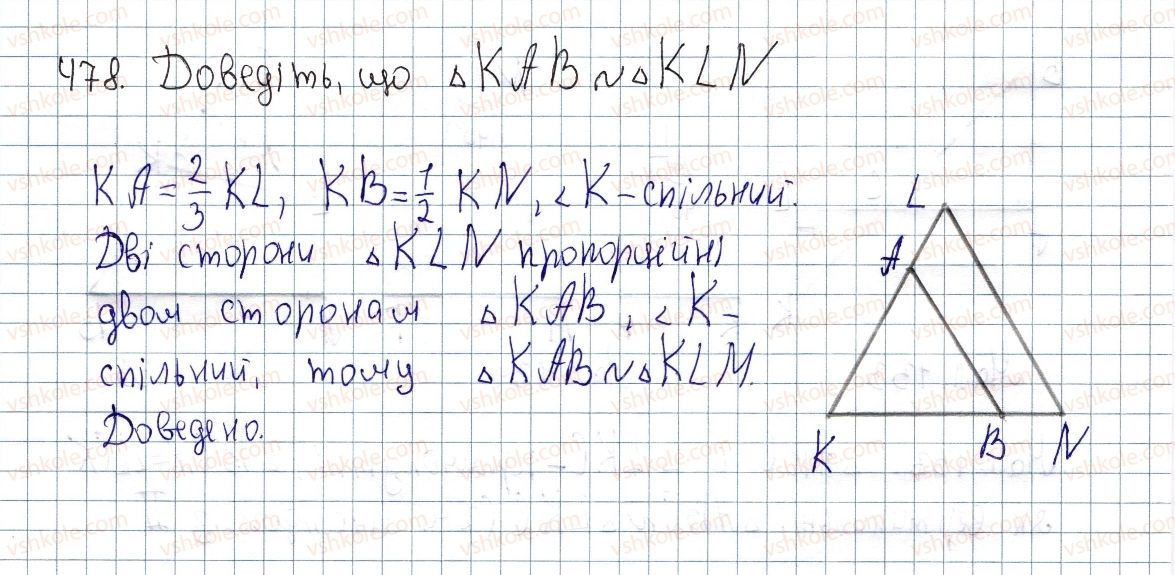 478. Доведіть, що △KAB ~ △KLN
KA = 2/3 KL, KB = 1/2 KN, ∠K – спільний.
Дві сторони △KLN пропорційні
двом сторонам △KAB, ∠K –
спільний, тому △KAB ~ △KLM.
Доведено.
L
A
K
B
N
vshkole.com